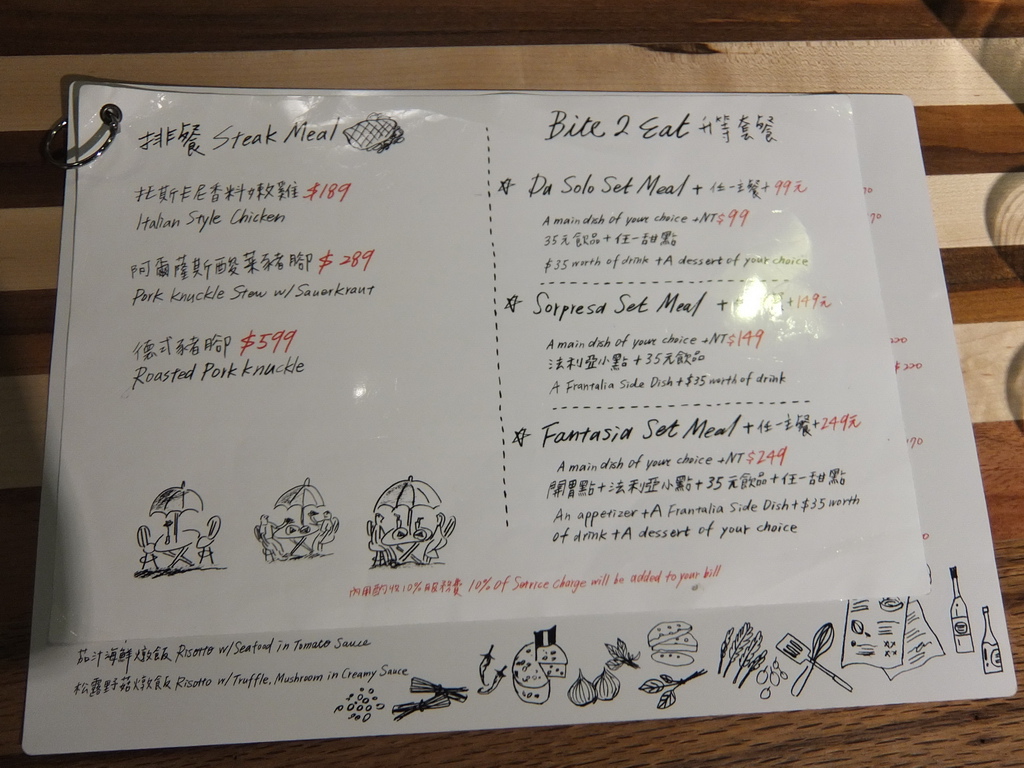 排餐 Steak Meal
托斯卡尼香料嫩雞 $189
Italian Style Chicken
阿爾薩斯酸菜豬腳 $289
Pork Knuckle Stew w/ Sauerkraut
德式豬腳 $599
Roasted Pork Knuckle
Bite 2 Eat 升等套餐
☆ Da Solo Set Meal + 任一主餐 + 99元
A main dish of your choice +NT$99
35元飲品 + 任一甜點
$35 worth of drink + A dessert of your choice
☆ Sorpresa Set Meal + +149元
A main dish of your choice +NT$149
法利亞小點 + 35元飲品
A Frantalia Side Dish + $35 worth of drink
☆ Fantasia Set Meal + 任一主餐 + 249元
A main dish of your choice +NT$249
開胃點 + 法利亞小點 + 35元飲品 + 任一甜點
An appetizer + A Frantalia Side Dish + $35 worth
of drink + A dessert of your choice
內用酌收10%服務費 10% Of Survice charge will be added to your bill
茄汁海鮮燉飯 Risotto w/Seafood in Tomato Sauce
松露野菇燉飯 Risotto w/Truffle, Mushroom in Creamy Sauce